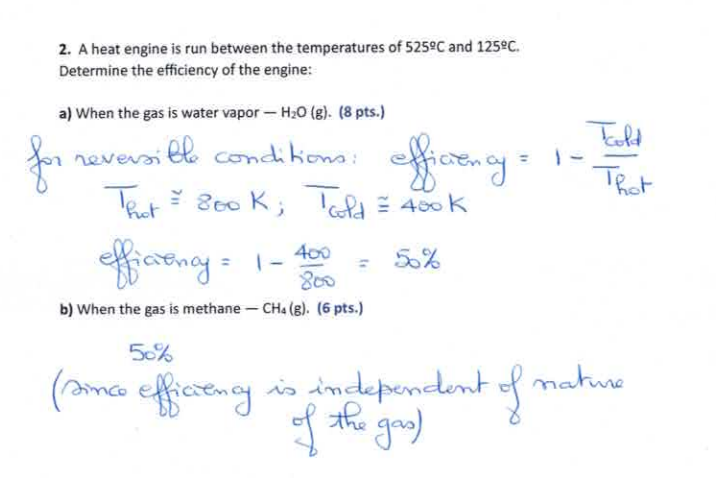 2. A heat engine is run between the temperatures of 525ºC and 125ºC.
Determine the efficiency of the engine:
a) When the gas is water vapor — H₂O (g). (8 pts.)
for reversible conditions: efficiency = 1 - Tcold / Thot
Thot ≅ 800 K; Tcold ≅ 400 K
efficiency = 1 - 400/800 = 50%
b) When the gas is methane — CH₄ (g). (6 pts.)
50%
(since efficiency is independent of nature
of the gas)